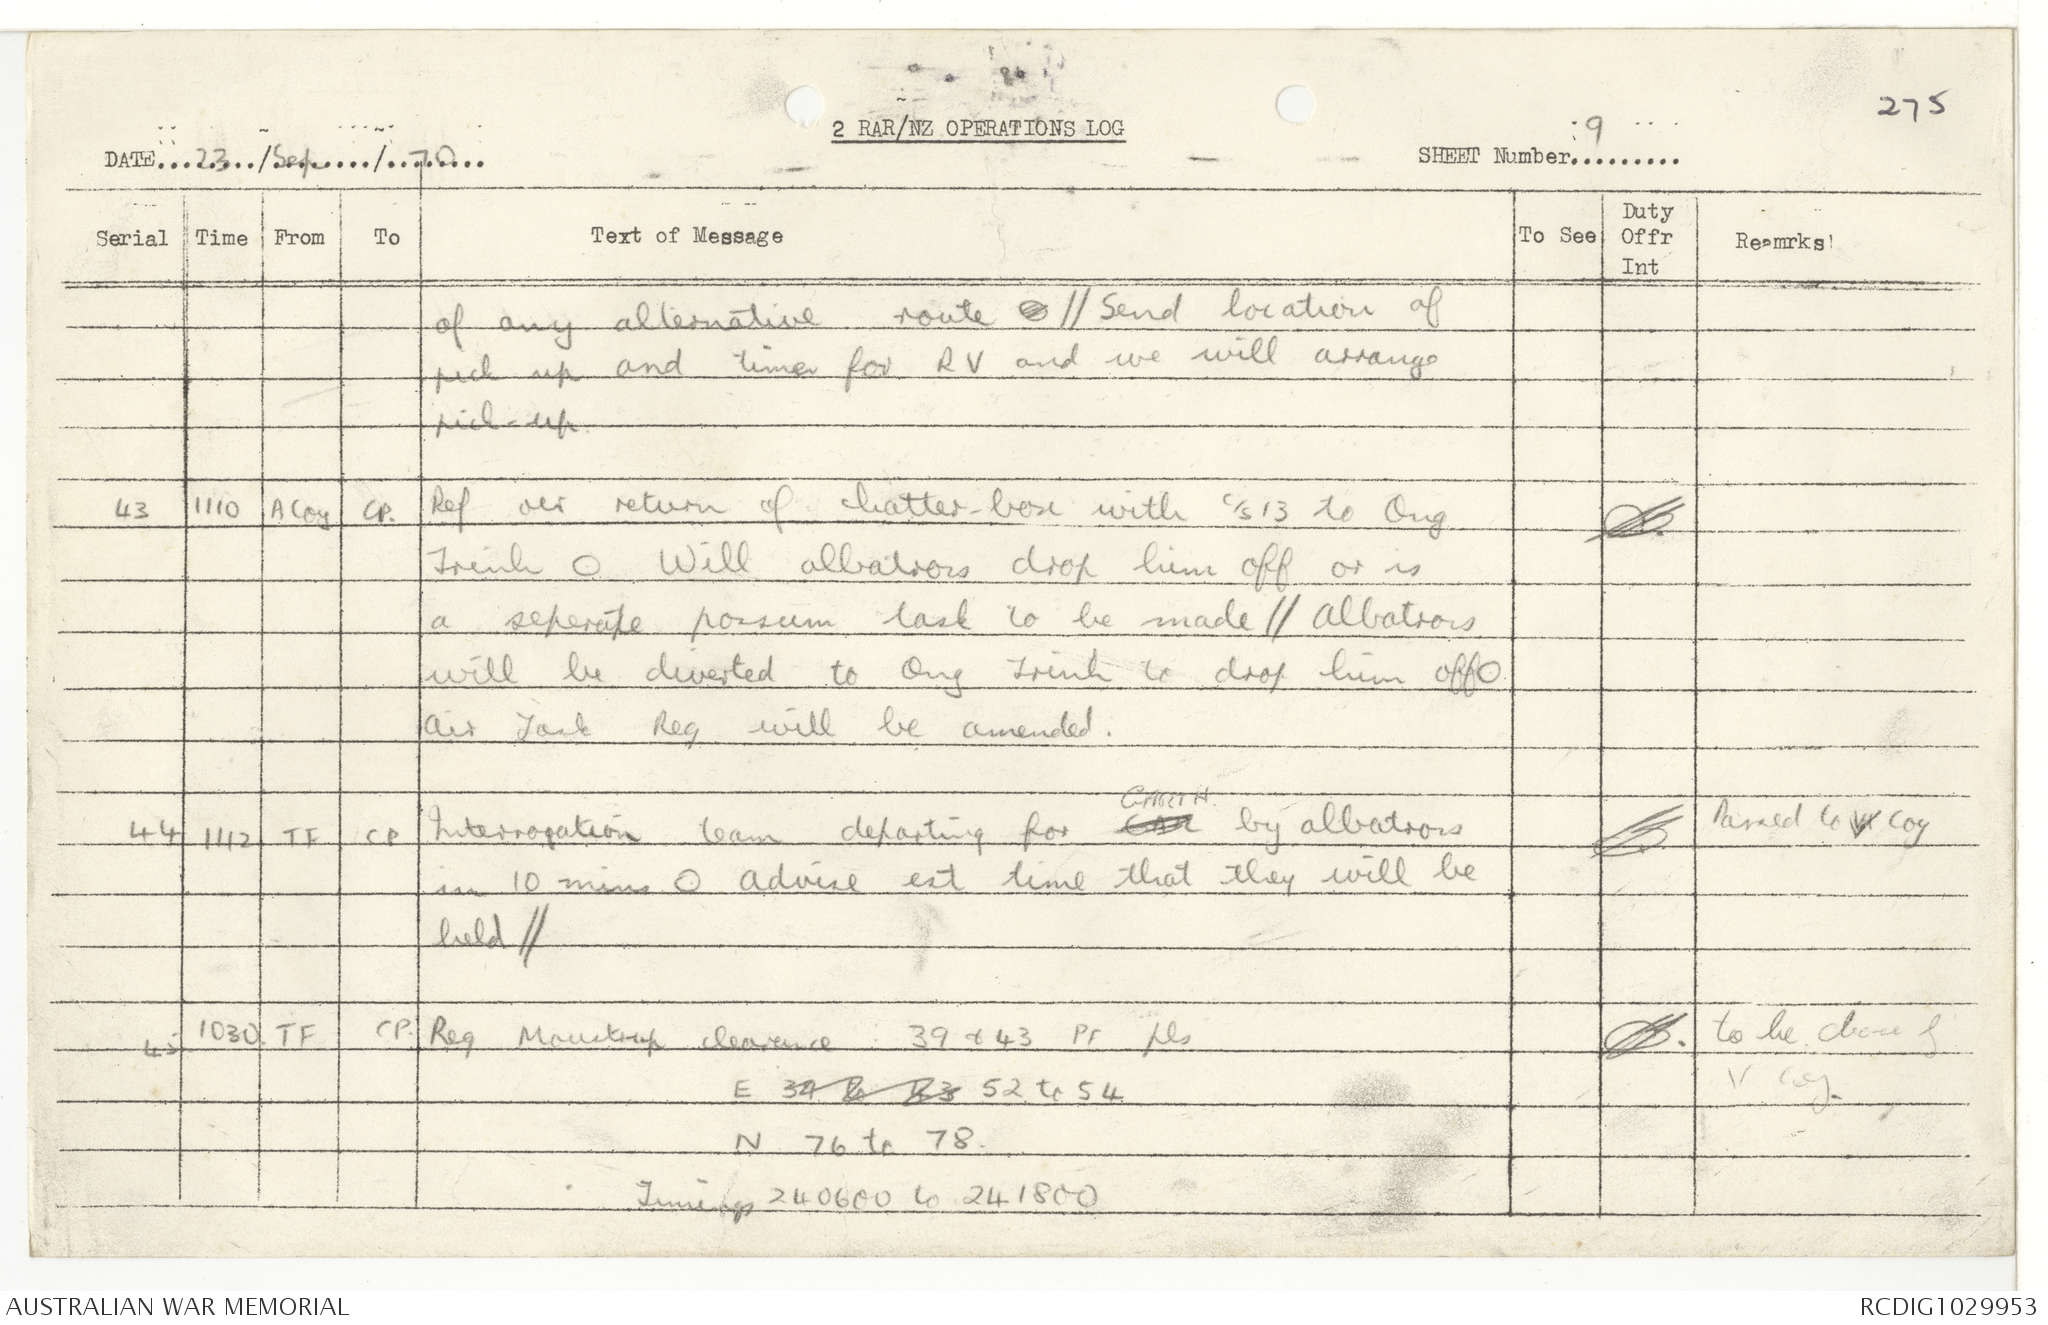 86
275
2 RAR/NZ OPERATIONS LOG
DATE...23.../Sep....../...70...
SHEET Number 9.........
Serial Time From To Text of Message To See Duty Offr Int Remrks
of any alternative route // Send location of
pick up and times for RV and we will arrange
pick-up.
43 1110 A Coy CP. Ref our return of chatter-box with C/S 13 to Ong
Trinh O Will albatross drop him off or is
a seperate possum task to be made // Albatross
will be diverted to Ong Trinh to drop him off O
Air Task Req will be amended.
44 1112 TF CP Interrogation team departing for GARTH by albatross Passed to V Coy
in 10 mins O Advise est time that they will be
held //
45 1030 TF CP. Req Moustrap clearence 39 & 43 PF pls to be done by
E 52 to 54 V Coy.
N 76 to 78.
Timings 240600 to 241800
AUSTRALIAN WAR MEMORIAL
RCDIG1029953